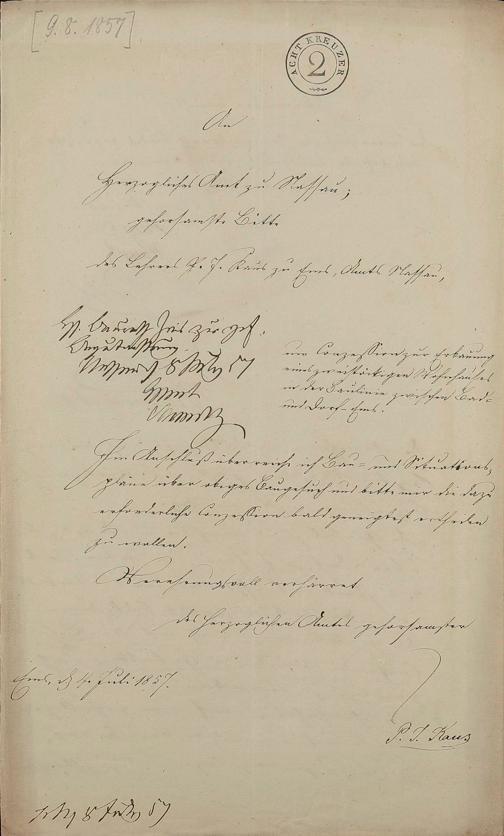 [9.8.1857]
ACHT KREUZER
2
An
Herzogliches Amt zu Nassau;
gehorsamste Bitte
des Lehrers P. J. Kaus zu Ems, Amts Nassau,
um Conzession zur Erbauung
eines zweistöckigen Wohnhauses
in der Baulinie zwischen Bad-
und Dorf-Ems.
zur gef.
Nassau 8 July 57
Amt
Im Anschluß überreiche ich Bau- und Situations-
pläne über obiges Baugesuch und bitte mir die dazu
erforderliche Conzession bald geneigtest ertheilen
zu wollen.
Verehrungsvoll verharret
des Herzoglichen Amts gehorsamster
Ems, d. 4. Juli 1857.
P. J. Kaus
8 July 57